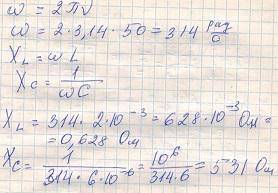 ω = 2πν
ω = 2 · 3,14 · 50 = 314 рад/с
X_L = ωL
X_C = 1/ωC
X_L = 314 · 2·10⁻³ = 628 · 10⁻³ Ом =
= 0,628 Ом
X_C = 1/314·6·10⁻⁶ = 10⁶/314·6 = 531 Ом